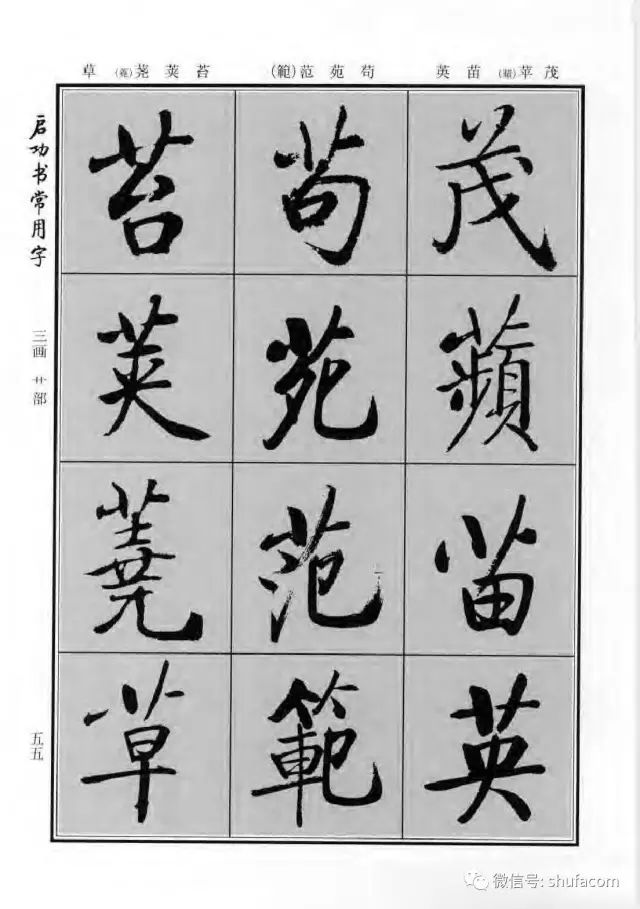 茂苹(蘋)苗英
苟苑范(範)
苔荚荛(蕘)草
茂蘋苗英
苟苑范範
苔荚蕘草
启功书常用字
三画 艹部
五五
微信号: shufacom